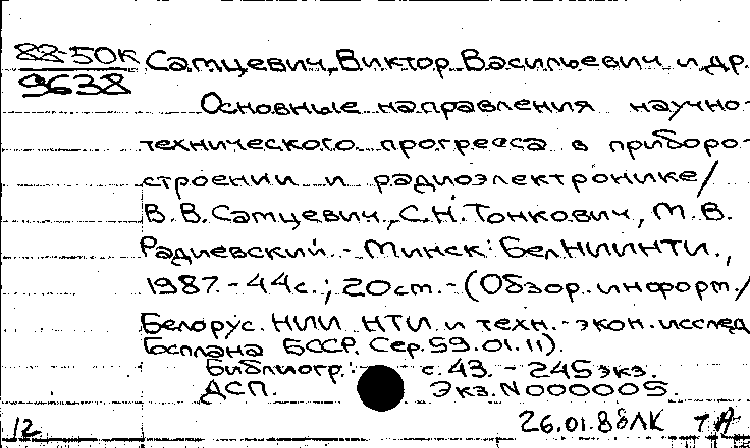 88-50К Сатцевич, Виктор Васильевич и др.
9638
Основные направления научно-
технического прогресса в приборо-
строении и радиоэлектронике/
В.В. Сатцевич, С.Н. Тонкович, М.В.
Радиевский. - Минск: БелНИИНТИ.,
1987. - 44с.; 20ст. - (Обзор. информ./
Белорус. НИИ НТИ и техн.-экон. исслед
Госплана БССР. Сер. 59.01.11).
Библиогр.: с. 43. - 245 экз.
ДСП. Экз. N000005.
26.01.88 ЛК
12